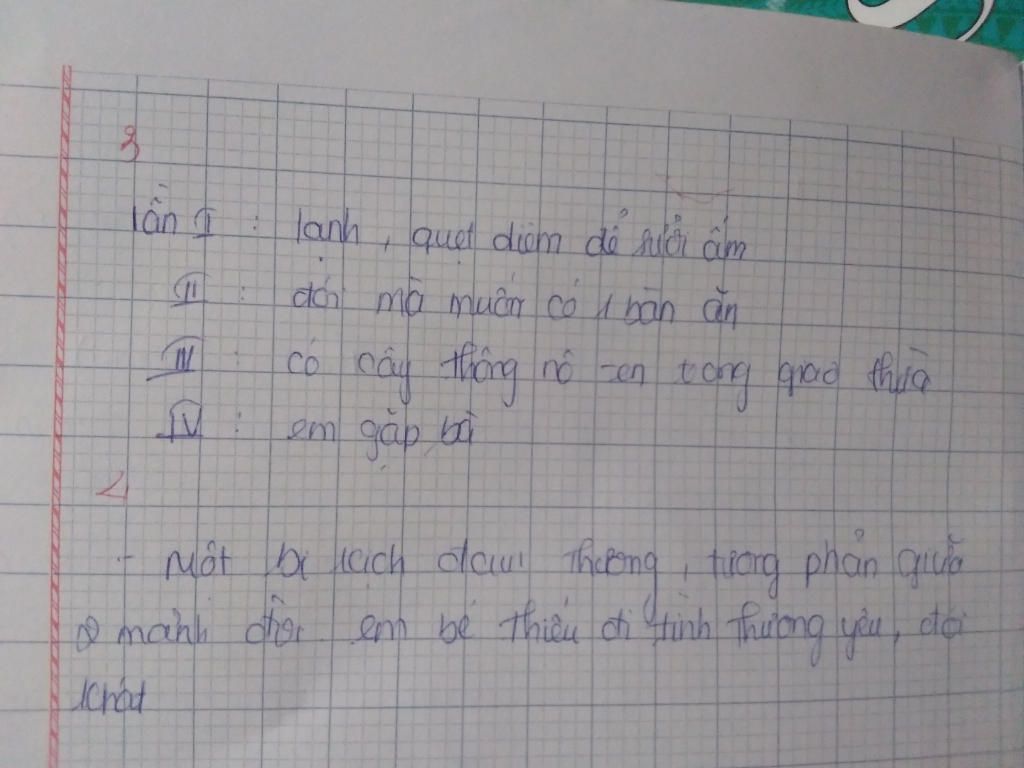 3
lần I : lạnh, quẹt diêm để sưởi ấm
II : đói mà muốn có 1 bàn ăn
III : có cây thông nô-en trong giao thừa
IV : em gặp bà
4
- Một bi kịch đau thương, tương phản giữa
mảnh đời em bé thiếu đi tình thương yêu, đói
khát